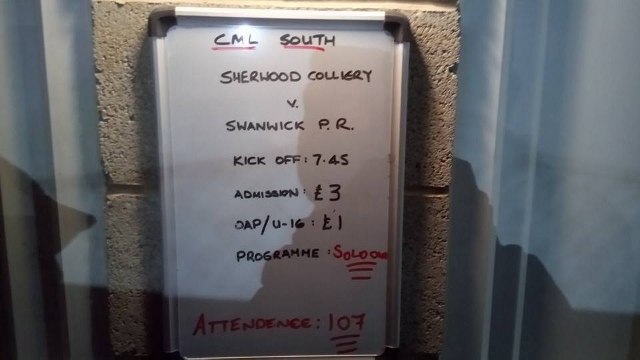 CML SOUTH
SHERWOOD COLLIERY
V.
SWANWICK P.R.
KICK OFF: 7.45
ADMISSION: £3
OAP/U-16: £1
PROGRAMME: SOLD OUT
ATTENDENCE: 107